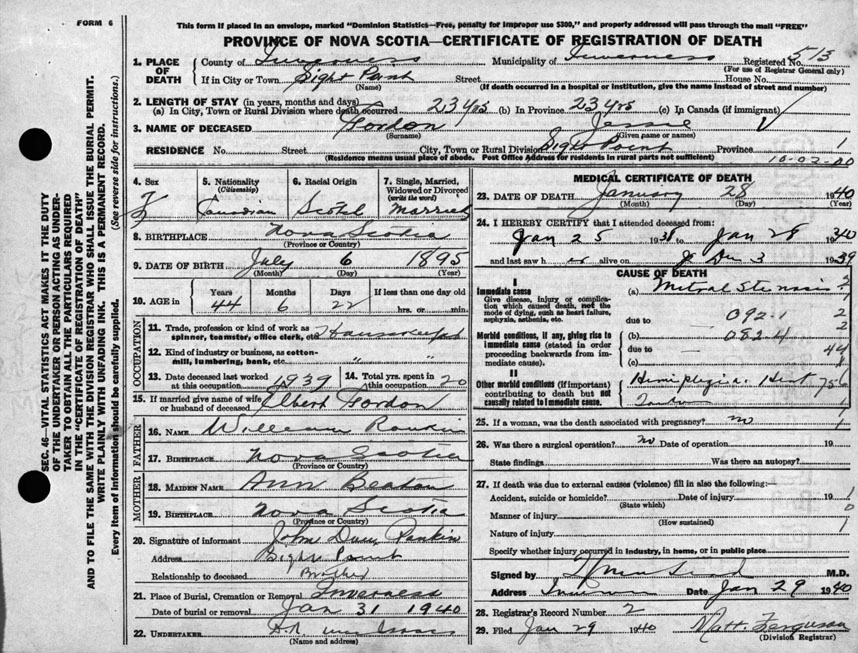 FORM 6
This form if placed in an envelope, marked "Dominion Statistics—Free, penalty for improper use $300," and properly addressed will pass through the mail "FREE"
PROVINCE OF NOVA SCOTIA—CERTIFICATE OF REGISTRATION OF DEATH
SEC. 46—VITAL STATISTICS ACT MAKES IT THE DUTY
OF THE UNDERTAKER OR PERSON ACTING AS UNDER-
TAKER TO OBTAIN ALL THE PARTICULARS REQUIRED
IN THE "CERTIFICATE OF REGISTRATION OF DEATH"
AND TO FILE THE SAME WITH THE DIVISION REGISTRAR WHO SHALL ISSUE THE BURIAL PERMIT.
WRITE PLAINLY WITH UNFADING INK. THIS IS A PERMANENT RECORD.
Every item of information should be carefully supplied. (See reverse side for instructions.)
1. PLACE OF DEATH
County of Inverness Municipality of Inverness Registered No. 513
(For use of Registrar General only)
If in City or Town Sight Point Street House No.
(Name) (If death occurred in a hospital or institution, give the name instead of street and number)
2. LENGTH OF STAY (in years, months and days)
(a) In City, Town or Rural Division where death occurred 23 yrs (b) In Province 23 yrs (c) In Canada (if immigrant)
3. NAME OF DECEASED Gordon Jessie
(Surname) (Given name or names)
RESIDENCE No. Street City, Town or Rural Division Sight Point Province 1
(Residence means usual place of abode. Post Office Address for residents in rural parts not sufficient) 10-02-00
4. Sex F
5. Nationality (Citizenship) Canadian
6. Racial Origin Scotch
7. Single, Married, Widowed or Divorced (write the word) Married
8. BIRTHPLACE Nova Scotia
(Province or Country)
9. DATE OF BIRTH July 6 1895
(Month) (Day) (Year)
10. AGE in Years Months Days If less than one day old
44 6 22 hrs. or min.
OCCUPATION
11. Trade, profession or kind of work as spinner, teamster, office clerk, etc.
12. Kind of industry or business, as cotton-mill, lumbering, bank, etc. " "
13. Date deceased last worked at this occupation 1939
14. Total yrs. spent in this occupation 20
15. If married give name of wife or husband of deceased Albert Gordon
FATHER
16. NAME William Rankin
17. BIRTHPLACE Nova Scotia
(Province or Country)
MOTHER
18. MAIDEN NAME Ann Beaton
19. BIRTHPLACE Nova Scotia
(Province or Country)
20. Signature of informant John Rankin
Address Sight Point
Relationship to deceased Brother
21. Place of Burial, Cremation or Removal Inverness
Date of burial or removal Jan 31 1940
22. UNDERTAKER
(Name and address)
MEDICAL CERTIFICATE OF DEATH
23. DATE OF DEATH January 28 1940
(Month) (Day) (Year)
24. I HEREBY CERTIFY that I attended deceased from:
Jan 25 to Jan 28
and last saw h alive on
CAUSE OF DEATH
I
Immediate cause
Give disease, injury or complication which caused death, not the mode of dying, such as heart failure, asphyxia, asthenia, etc.
(a) Mitral Stenosis
due to 092.1 2
Morbid conditions, if any, giving rise to immediate cause (stated in order proceeding backwards from immediate cause).
(b) 082.4 2
due to 44
(c)
II
Other morbid conditions (if important) contributing to death but not causally related to immediate cause.
Hemiplegia. 756
25. If a woman, was the death associated with pregnancy? no
26. Was there a surgical operation? No Date of operation 19
State findings Was there an autopsy?
27. If death was due to external causes (violence) fill in also the following:—
Accident, suicide or homicide? Date of injury 19
(State which)
Manner of injury
(How sustained)
Nature of injury
Specify whether injury occurred in industry, in home, or in public place
Signed by M.D.
Address Date Jan 29 1940
28. Registrar's Record Number 2
29. Filed Jan 29 1940 Matt. Ferguson
(Division Registrar)